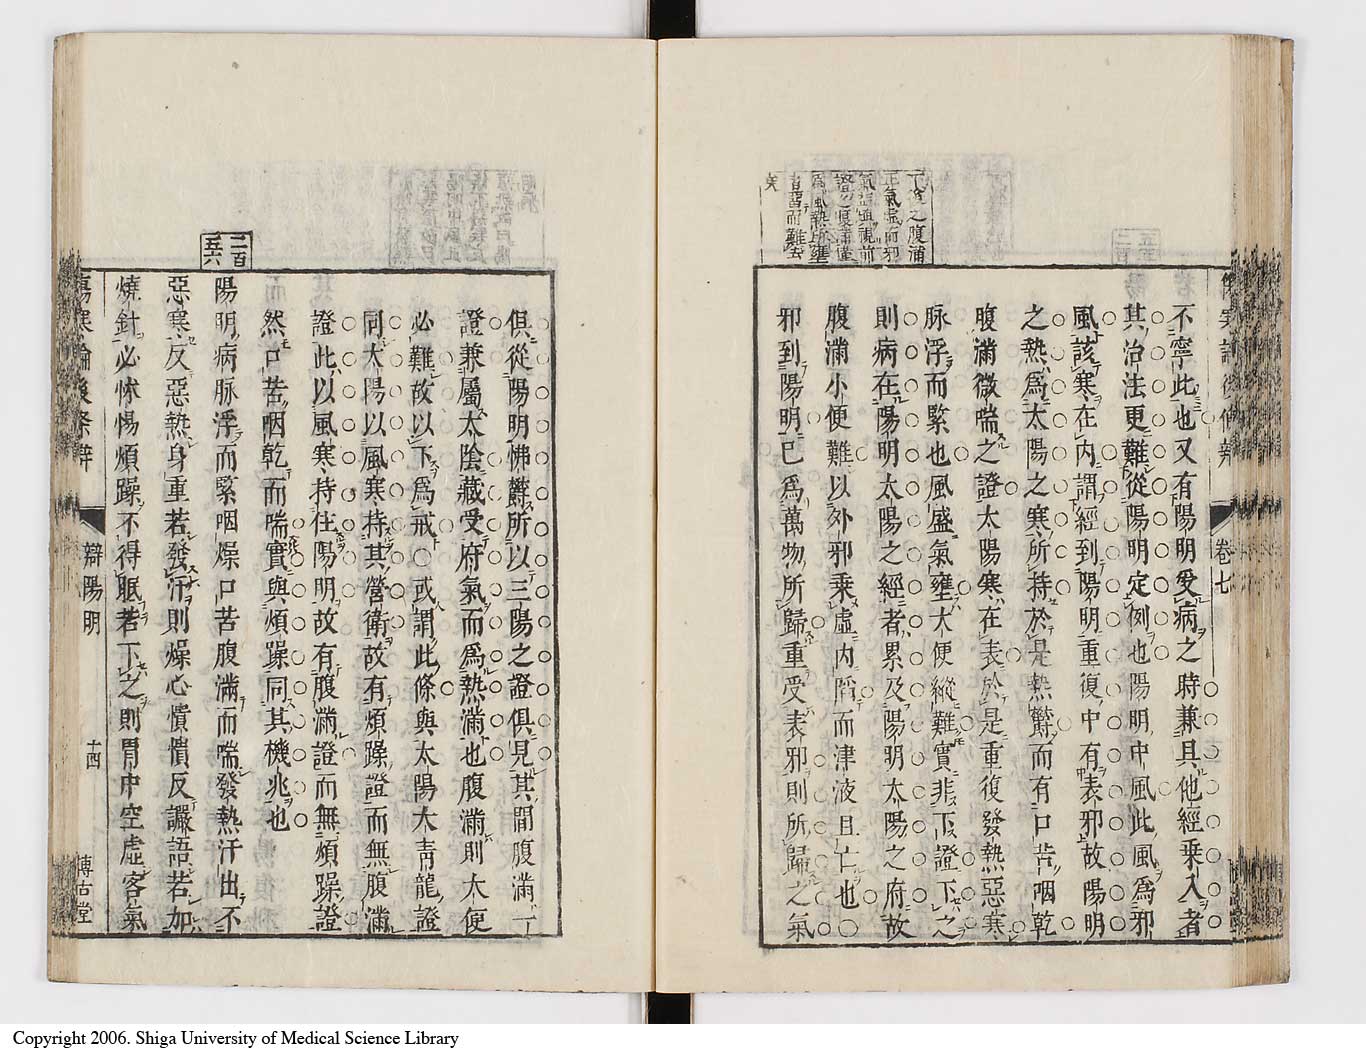 下後之腹滿
正氣虛而邪
氣益實視前
證之腹滿僅
爲風熱所壅
者習而難去
矣
不寧此也又有陽明受病之時兼具他經乘入者
其治法更難從陽明定例也陽明中風此風爲邪
風該寒在内謂經到陽明重復中有表邪故陽明
之熱爲太陽之寒所持於是熱欝而有口苦咽乾
腹滿微喘之證太陽寒在表於是重復發熱惡寒
脉浮而緊也風盛氣壅大便縱難實非下證下之
則病在陽明太陽之經者累及陽明太陽之府故
腹滿小便難以外邪乘虛内陷而津液且亡也
邪到陽明已爲萬物所歸重受表邪則所歸之氣
卷七
俱從陽明怫欝所以三陽之證俱見其間腹滿一
證兼屬太陰藏受府氣而爲熱滿也腹滿則大便
必難故以下爲戒○或謂此條與太陽大青龍證
同太陽以風寒持其營衛故有煩躁證而無腹滿
證此以風寒持住陽明故有腹滿證而無煩躁證
然口苦咽乾而喘實與煩躁同其機兆也
二百
五六
陽明病脉浮而緊咽燥口苦腹滿而喘發熱汗出不
惡寒反惡熱身重若發汗則燥心憒憒反讝語若加
燒針必怵惕煩躁不得眠若下之則胃中空虛客氣
傷寒論後條辨
辯陽明
十四
博古堂
Copyright 2006. Shiga University of Medical Science Library